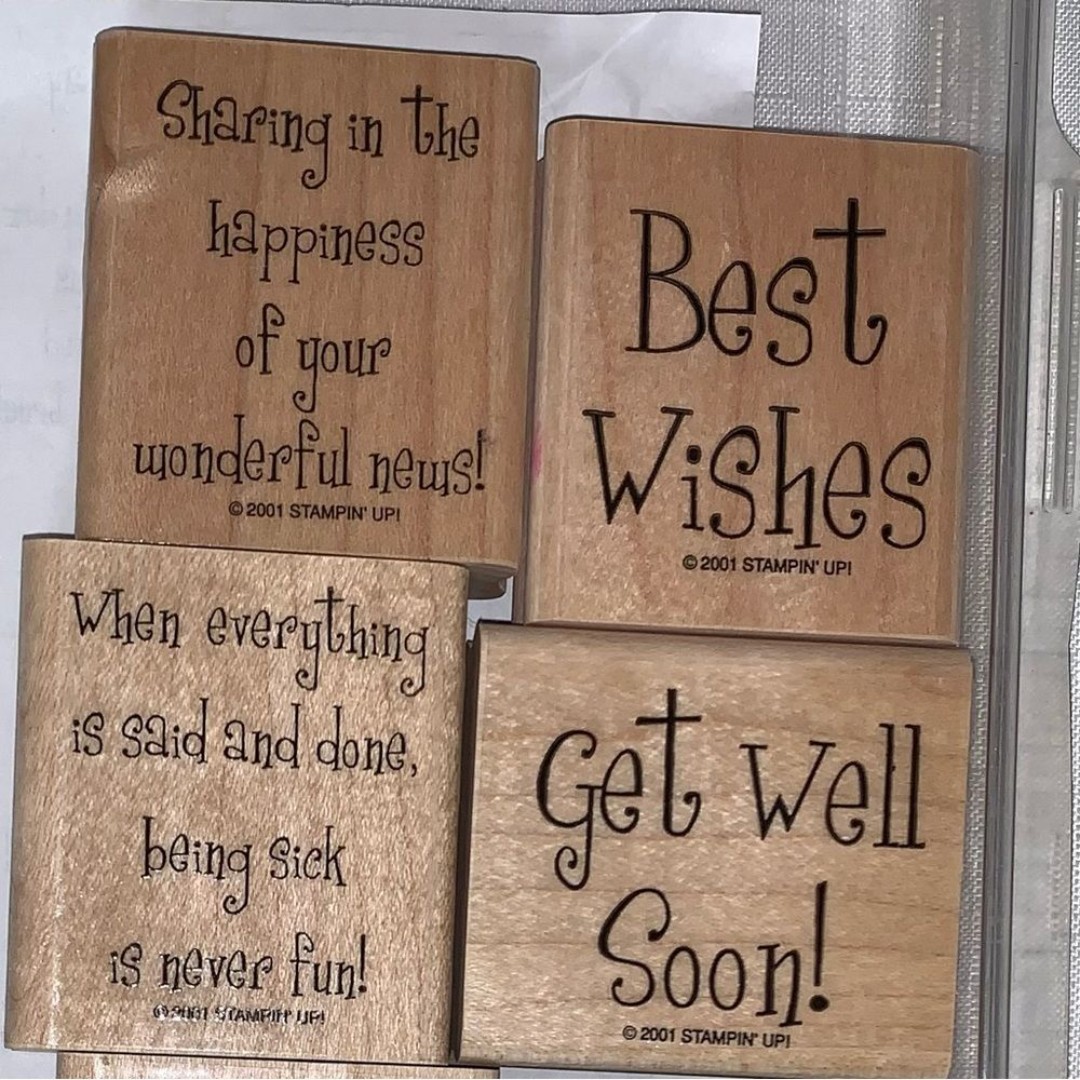 Sharing in the
happiness
of your
wonderful news!
© 2001 STAMPIN' UP!
Best
Wishes
© 2001 STAMPIN' UP!
When everything
is said and done,
being sick
is never fun!
© 2001 STAMPIN' UP!
Get Well
Soon!
© 2001 STAMPIN' UP!